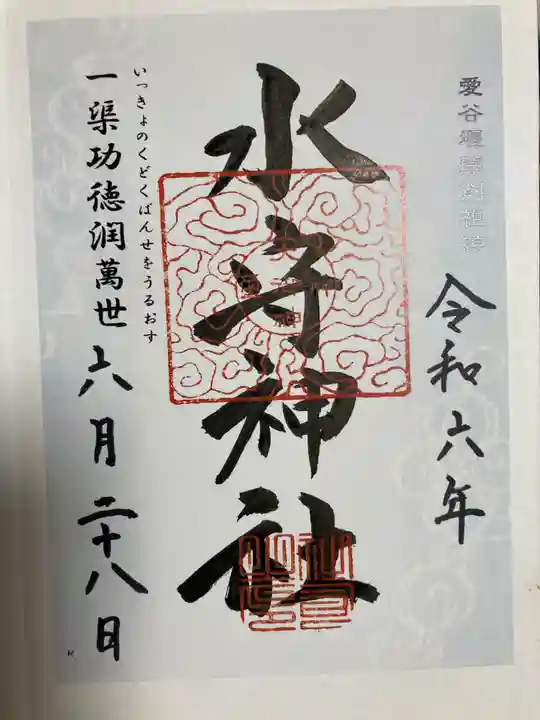 愛谷堰
令和六年
水守神社
いっきょのくどくばんせをうるおす
一渠功徳潤萬世
六月二十八日